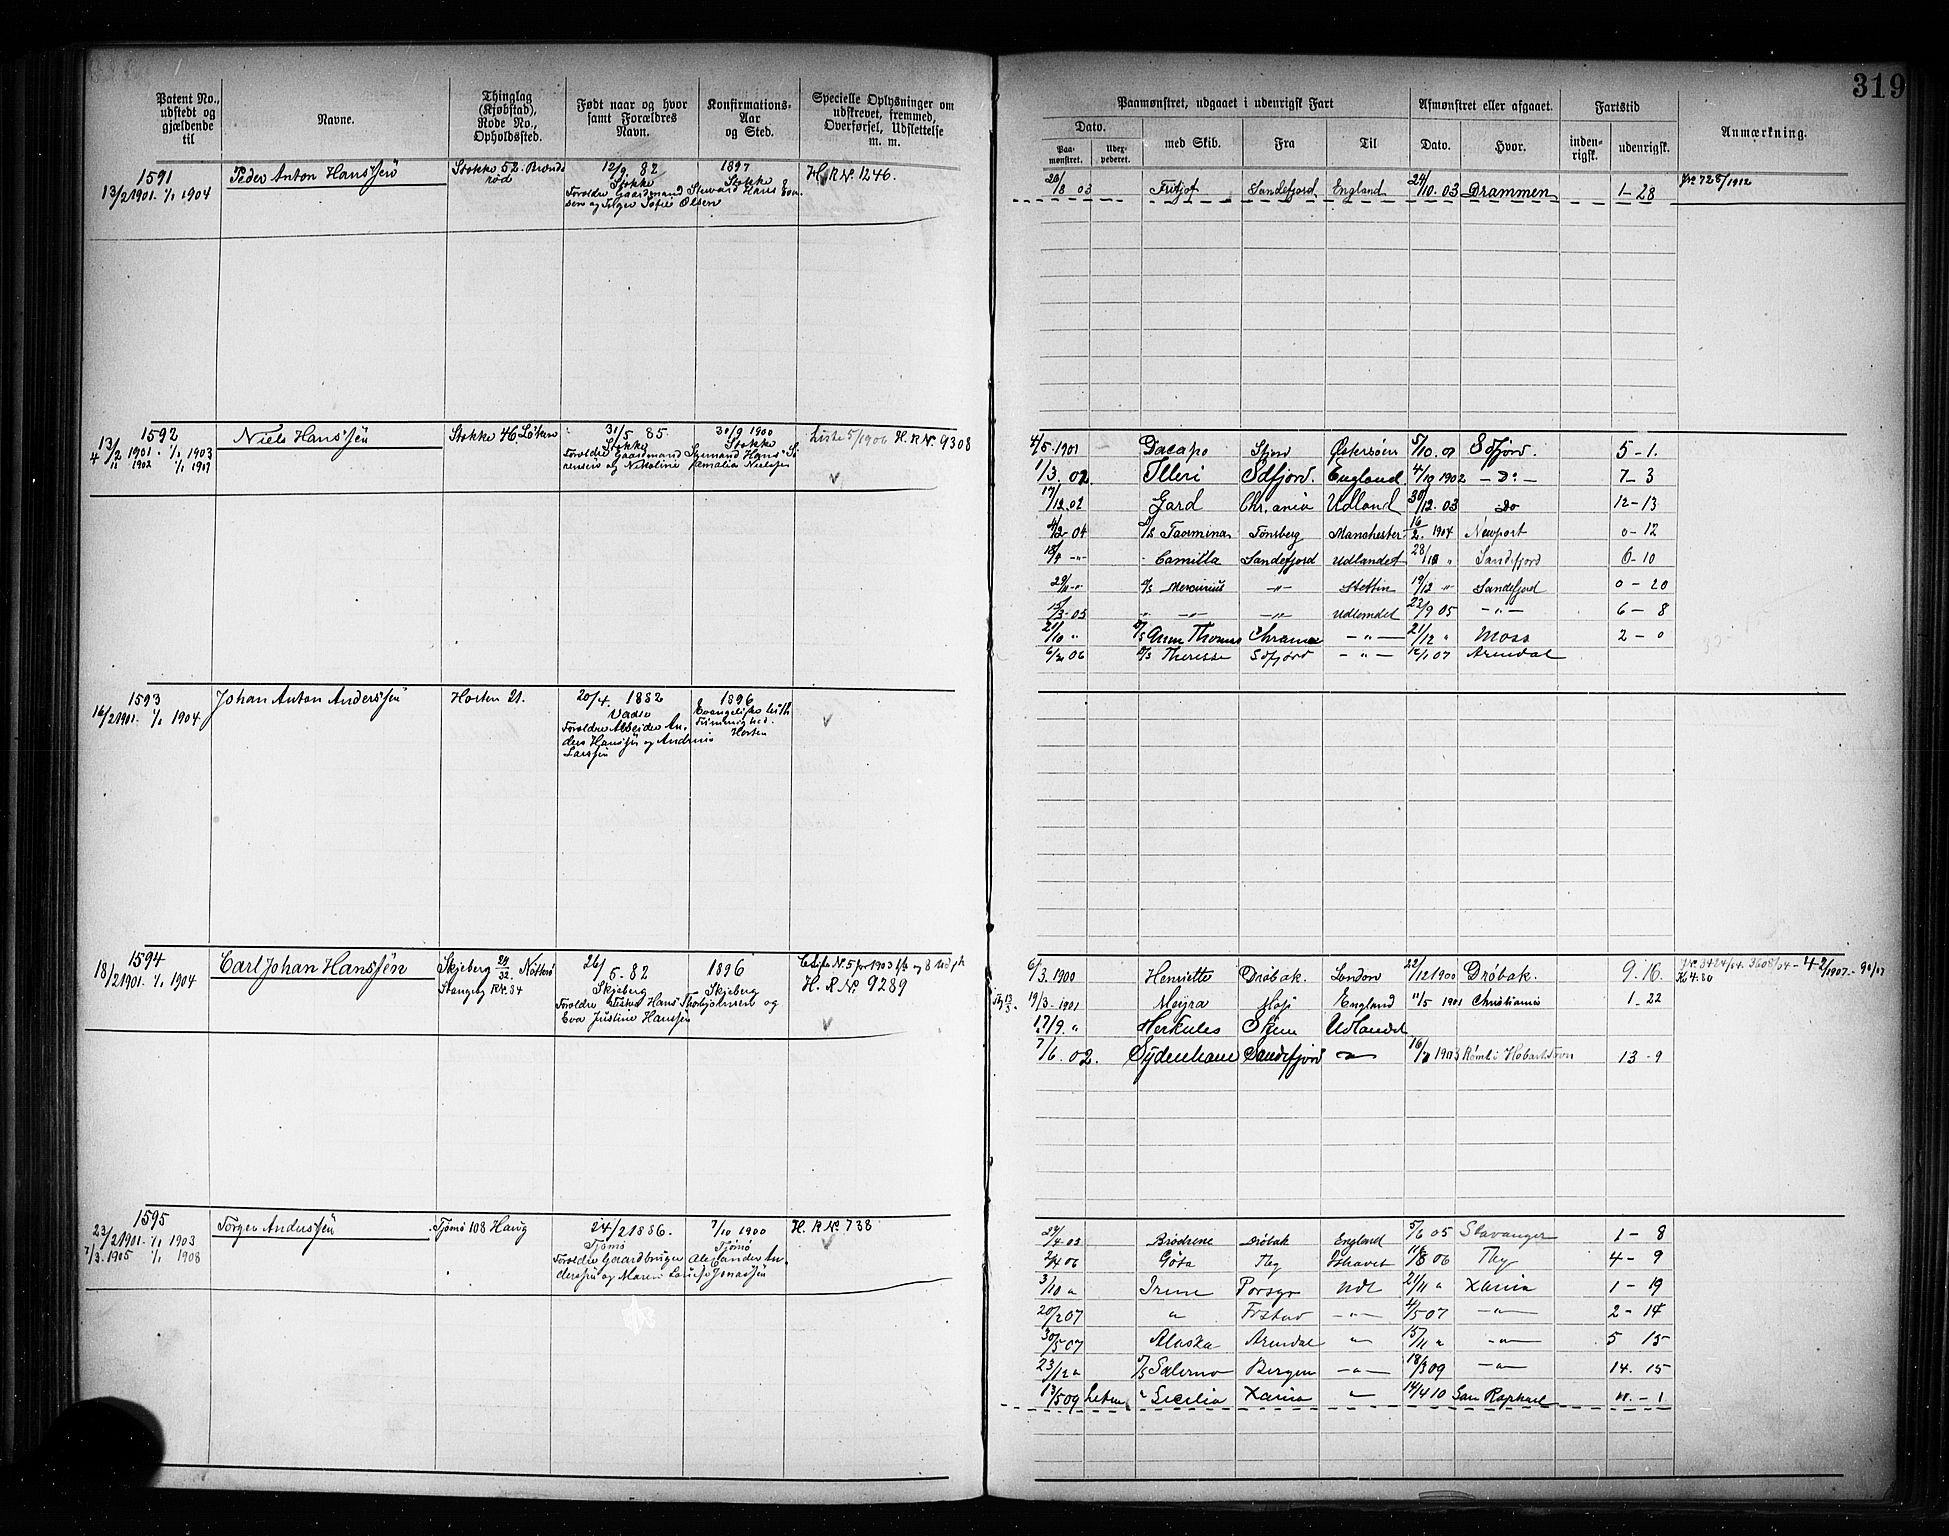 319
Patent No., udstedt og gjældende til
Navne.
Thinglag (Kjøbstad), Rode No., Opholdssted.
Født naar og hvor samt Forældres Navn.
Konfirmations-Aar og Sted.
Specielle Oplysninger om udskrevet, fremmed, Overførsel, Udslettelse m. m.
Paamønstret, udgaaet i udenrigsk Fart
Afmønstret eller afgaaet.
Fartstid
Anmærkning.
Dato.
Paamønstret.
Udexpederet.
med Skib.
Fra
Til
Dato.
Hvor.
indenrigsk.
udenrigsk.
1591
13/2 1901. 1/1 1904
Peder Anton Hanssen
Stokke 52. Brænds
rød
12/9 82
Stokke
1897
Stokke
H. R. No. 1246.
Forældre Gaardmand Styrmand Hans
og Inger Sofie Olsen
20/8 03 Fritjof Sandefjord England 24/10. 03 Drammen 1-28
No 728/1912
1592
13/2 1901. 1/1 1903
4/11 1902 1/1 1907
Niels Hanssen
Stokke 46. Løken
31/5 85.
Stokke
30/9 1900
Stokke
Liste 5/1906 H. R. No. 9308
Forældre Gaardmand Styrmand Hans Sø
rensen og Nikoline Amalia Nielsen
4/5. 1901 Dacapo Sfjord Østersøen 5/10. 01 Sdfjord. 5-1.
1/3. 02 Illeri Sdfjord. England 4/10 1902 - Do - 7-3
17/12.02 Gard Chr.ania Udland 30/12. 03 Do 12-13
4/2 04 D/S Taormina Tønsberg Manchester 16/2. 1904 Newport 0-12
18/4 -"- Camilla Sandefjord Udlandet 28/10 " Sandefjord 6-10
29/11 -"- D/S Mercurius -"- Stettin 19/12 " Sandefjord 0-20
15/3-05 " -"- -"- Udlandet 22/9 05 -"- 6-8
21/10 " D/S Green Thomas Chrania -"- 21/12 " Moss 2-0
6/2 06 D/S Therese Sdfjord -"- 12/1 07 Arendal
1593
16/2 1901. 1/1 1904
Johan Anton Anderssen
Horten 21.
20/4. 1882
Vadsø
1896
Evangelisk luth
Frimenighed.
Horten
Forældre Arbeider An-
ders Hanssen og Andrine
Larssen
1594
18/2 1901. 1/1 1904
Carl Johan Hanssen
Skjeberg 24/32. Nøtterø
Stangeby RNo. 34
26/5-82
Skjeberg
1896
Skjeberg
Liste No. 5 pr 1903
H. R. No. 9289
Forældre Fisker Hans Thorbjørnsen og
Eva Justine Hanssen
6/3. 1900 Henriette Drøbak. London 22/12 1900 Drøbak. 9-16.
19/3-1901 Meyra Moss England 11/5 1901 Christiania 1-22
17/9. " Herkules Skien Udlandet
7/6. 02. Sydenham Sandefjord " 16/7 1903 Rømt i Hobart Town 13-9
1595
23/2 1901. 1/1 1903
7/3. 1905 1/1 1908
Jørgen Anderssen
Tjømø 108 Haug
24/2 1886.
Tjømø
7/10 1900
Tjømø
H. R No. 738
Forældre Gaardbruger Alexander An-
derssen og Maren Louise Jonassen
29/4 03 Brødrene Drøbak England 5/6 05 Stavanger 1-8
2/4 06 Göta Tbg Ishavet 11/8 06 Tbg 4-9
3/10 " Irene Porsgr Udl 21/11 " Xania 1-19
20/2 07 " Frstad -"- 4/5 07 -"- 2-14
30/5 07 Alaska Arendal " 15/11 " -"- 5 15
23/12 " D/S Salerno Bergen -"- 18/3 09 -"- 14. 15
13/5 09 " Secilia Xania " 14/4 10 San Raphael 11.-1